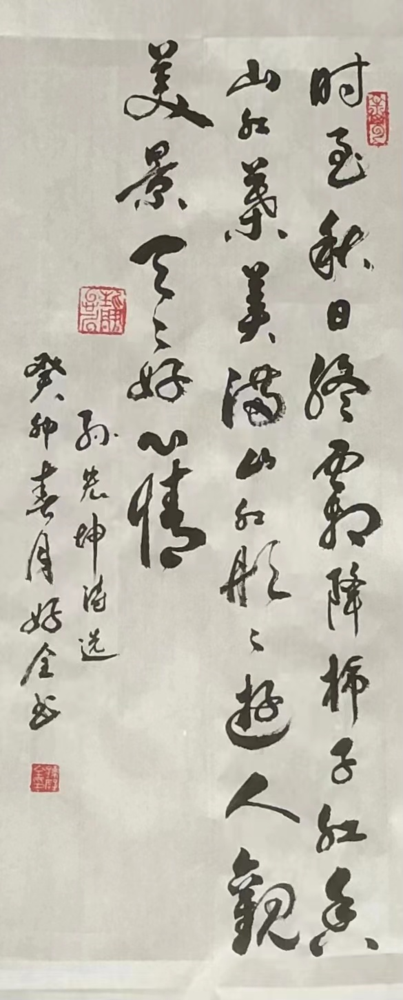 时至秋日终霜降柿子红香
山红叶美满山红彤々游人觀
美景天々好心情
孙光坤诗选
癸卯春月好全书